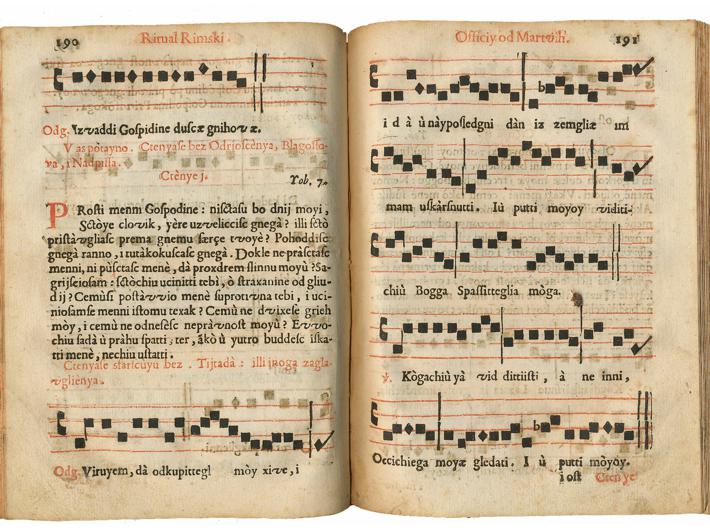 190
Ritual Rimski.
Odg. Izvaddi Gospidine duscæ gnihovæ.
V as potayno. Ctenyase bez Odrjoscènya, Blagosso-
va, i Nadpissa.
Ctènye J.
Yob. 7.
PRosti menni Gospodine: niſctasu bo dnij moyi,
Sctòye clovik, yère uzveliccise gnegà? illi ſctò
priſtàvgliasc prema gnemu særçe tvoyè? Pohoddisc
gnegà ranno, i tutàkokuſcasc gnegà. Dokle ne pràſctasc
menni, ni pùſctasc menè, dà proxdrem ſlinnu moyù? Sa-
grijſcioſam: ſctòchiu ucinitti tebì, ò ſtraxanine od gliu-
dij? Cemùſi poſtàvvio menè ſuprotivna tebi, i uci-
nioſamſe menni iſtomu texak? Cemù ne dvixeſc grieh
mòy, i cemù ne odneſeſc nepràvnoſt moyù? Evvo-
chiu ſadà ù pràhu ſpatti, ter, àkò ù yutro buddeſc iſka-
tti menè, nechiu uſtatti.
Ctenyale ſtariçuyu bez. Tijtadà: illi jnoga zagla-
vgliènya.
Odg. Viruyem, dà odkupittegl mòy xive, i
Officiy od Martvih.
191
i dà ù nàypoſledgni dàn iz zemgliæ im
mam uskàrſnutti. Iù putti moyoy viditi-
chiù Bogga Spaſſitteglia mòga.
℣. Kògachiù yà vid dittiiſti, à ne inni,
Occichiega moyæ gledati. I ù putti mòyòy.
i oſt Ctenye